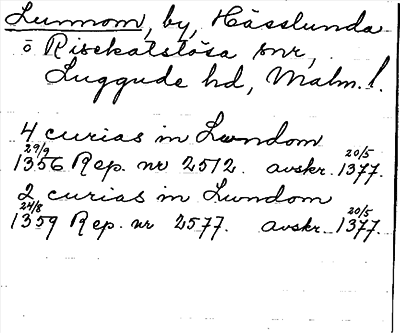 Lunnom, by, Hässlunda
o Risekatslösa snr,
Luggude hd, Malm. l.
4 curias in Lundom
29/9 20/5
1356 Rep. nr 2512. avskr. 1377.
2 curias in Lundom
24/8 20/5
1359 Rep. nr 2577. avskr. 1377.